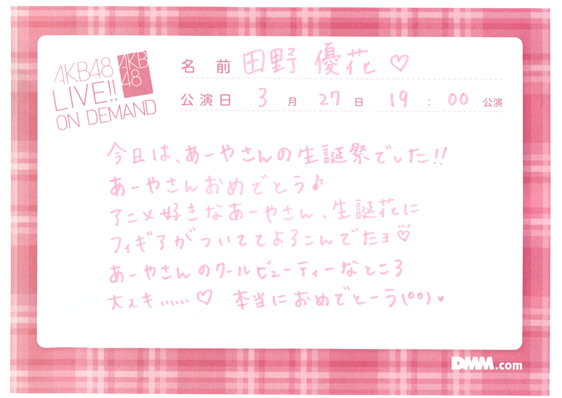 AKB48
LIVE!!
ON DEMAND
AKB
48
名 前 田野 優花 ♡
公演日 3 月 27 日 19 : 00 公演
今日は、あーやさんの生誕祭でした!!
あーやさんおめでとう♪
アニメ好きなあーやさん、生誕花に
フィギアがついててよろこんでたョ♡
あーやさんのクールビューティーなところ
大スキ……♡ 本当におめでとーう(°°)♥
DMM.com